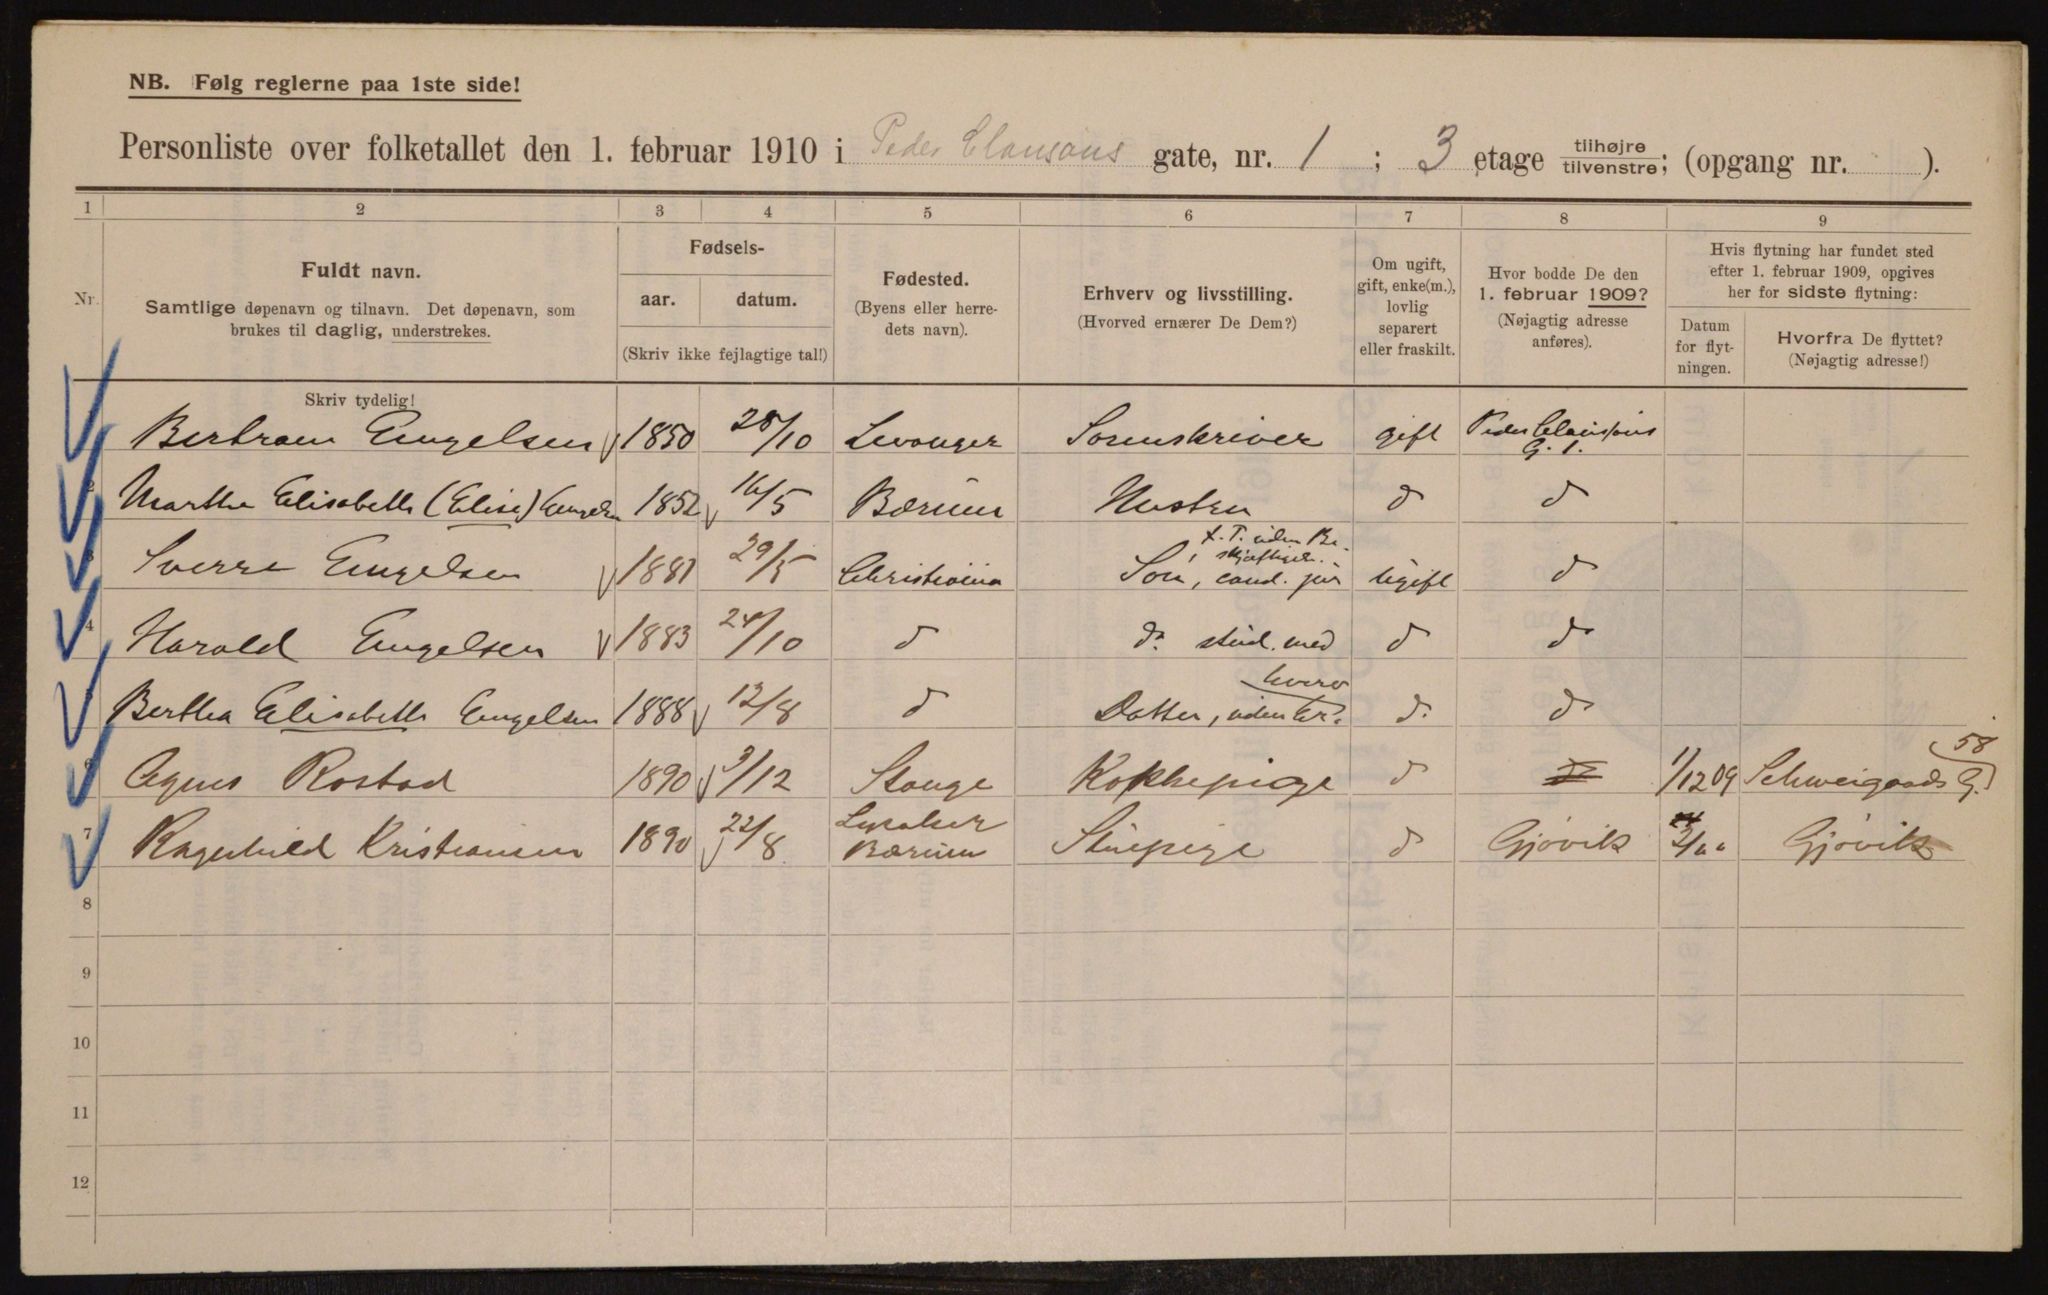 NB. Følg reglerne paa 1ste side!
Personliste over folketallet den 1. februar 1910 i Peder Clausøns gate, nr. 1 ; 3 etage tilhøjre tilvenstre; (opgang nr. ).
1 2 3 4 5 6 7 8 9
Nr.
Fuldt navn.
Samtlige døpenavn og tilnavn. Det døpenavn, som
brukes til daglig, understrekes.
Skriv tydelig!
Fødsels-
aar. datum.
(Skriv ikke fejlagtige tal!)
Fødested.
(Byens eller herre-
dets navn).
Erhverv og livsstilling.
(Hvorved ernærer De Dem?)
Om ugift,
gift, enke(m.),
lovlig
separert
eller fraskilt.
Hvor bodde De den
1. februar 1909?
(Nøjagtig adresse
anføres).
Hvis flytning har fundet sted
efter 1. februar 1909, opgives
her for sidste flytning:
Datum
for flyt-
ningen.
Hvorfra De flyttet?
(Nøjagtig adresse!)
Bertram Engelsen 1850 28/10 Levanger Sorenskriver gift Peder Claussøns G. 1.
2 Martha Elisabeth (Elise) Engelsen 1852 16/5 Bærum Hustru d d
3 Sverre Engelsen 1881 29/5 Christiania Søn, cand. jur f. T. uden Be-skjæftigelse ugift d
4 Harald Engelsen 1883 24/10 d do. stud. med d d
5 Bertha Elisabeth Engelsen 1888 12/8 d Datter, uden Erhverv d. d
6 Agnes Rostad 1890 3/12 Stange Kokkepige d 1/12 09 Schweigaards G. 58
7 Ragnhild Kristiansen 1890 22/8 Lysaker Bærum Stuepige d Gjøvik Gjøvik
8
9
10
11
12